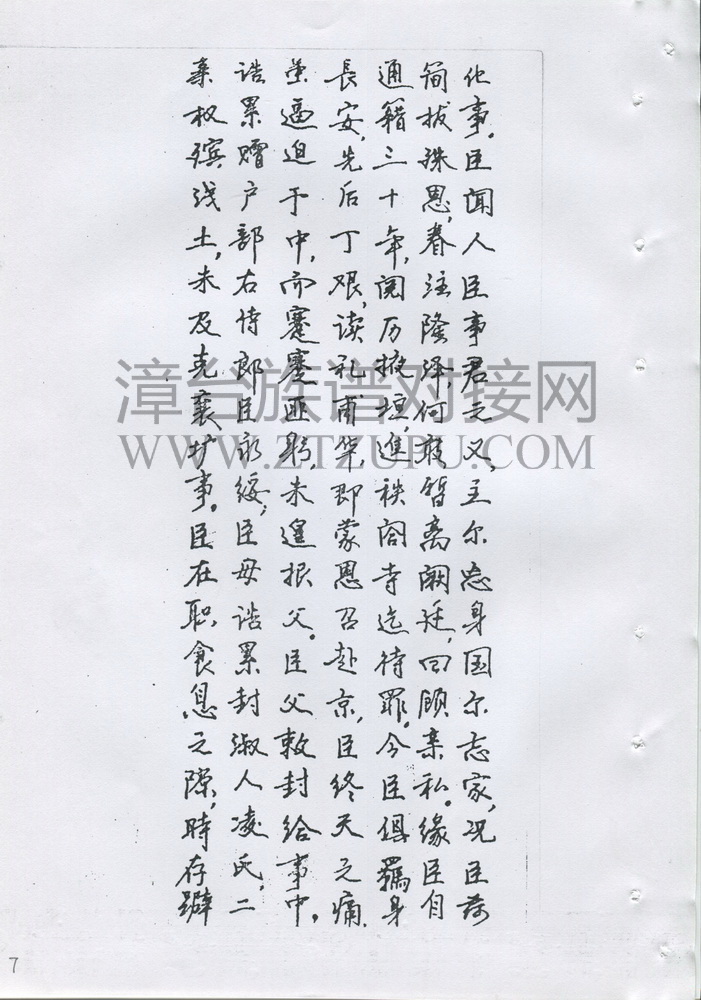 化事。臣闻人臣事君之义，主尔忘身国尔忘家，况臣荷
简拔殊恩，眷注隆泽，何敢暂离阙廷，回顾亲私。缘臣自
通籍三十年，阅历掖垣，進秩阁寺迄待罪。今臣俱羁身
長安，先后丁艰，读礼甫毕，即蒙恩召赴京，臣终天之痛
萤逼迫于中，而蹇蹇匪躬，未遑报父。臣父敕封给事中，
诰累赠户部右侍郎臣永绥，臣母诰累封淑人凌氏，二
亲权殡浅土，未及克襄圹事。臣在职食息之隙，時存辟
漳台族谱对接网
WWW.ZTZUPU.COM
7